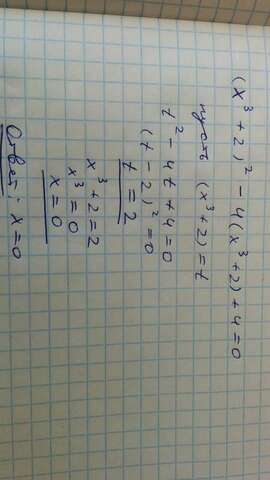 (x³+2)² - 4(x³+2)+4=0
пусть (x³+2)=t
t² - 4t+4=0
(t - 2)² =0
t = 2
x³+2=2
x³=0
x=0
Ответ: x=0